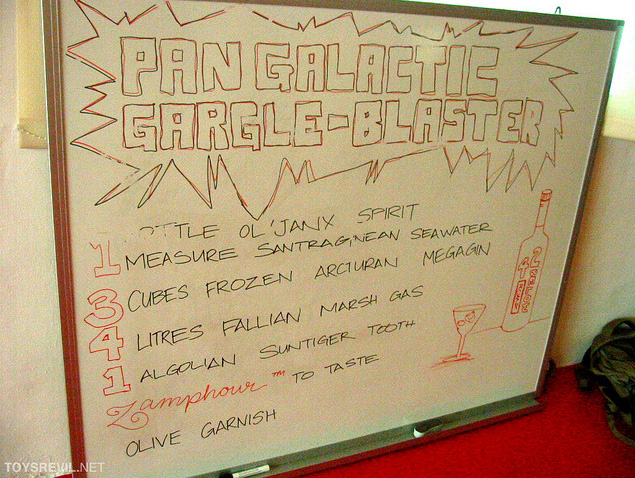 PAN GALACTIC
GARGLE-BLASTER
OL' JANX SPIRIT
1 MEASURE SANTRAGINEAN SEAWATER
3 CUBES FROZEN ARCTURAN MEGAGIN
4 LITRES FALLIAN MARSH GAS
1 ALGOLIAN SUNTIGER TOOTH
Zamphour™ TO TASTE
OLIVE GARNISH
42
TOYSREVIL.NET